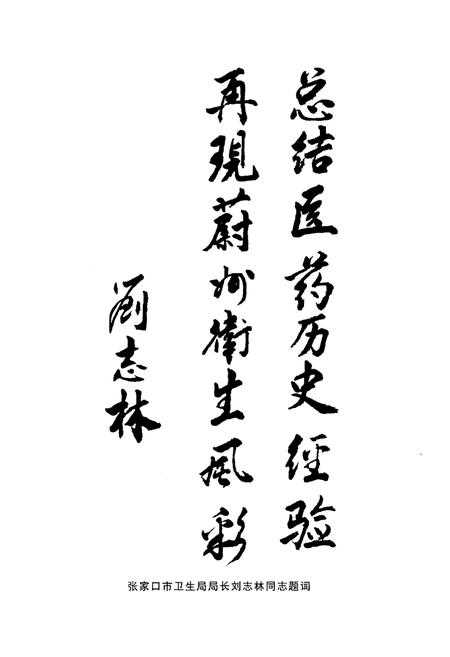 总结医药历史经验
再現蔚州衛生風彩
劉志林
张家口市卫生局局长刘志林同志题词